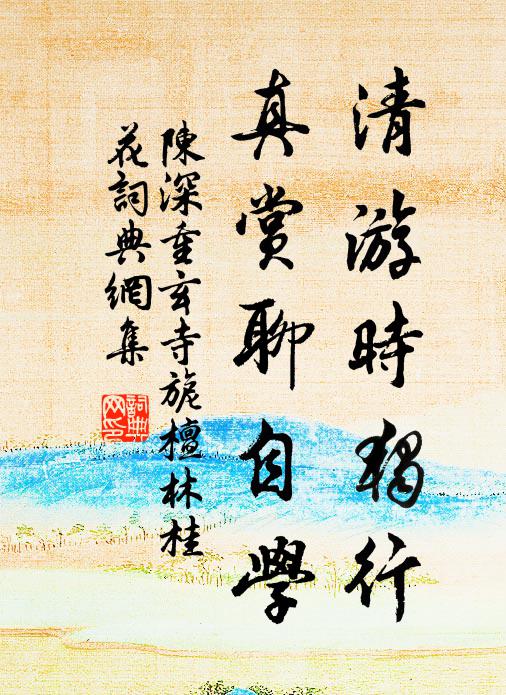 清游時獨行
真賞聊自學
陳深重玄寺旃檀林桂
花詞典網集
詞典
网印